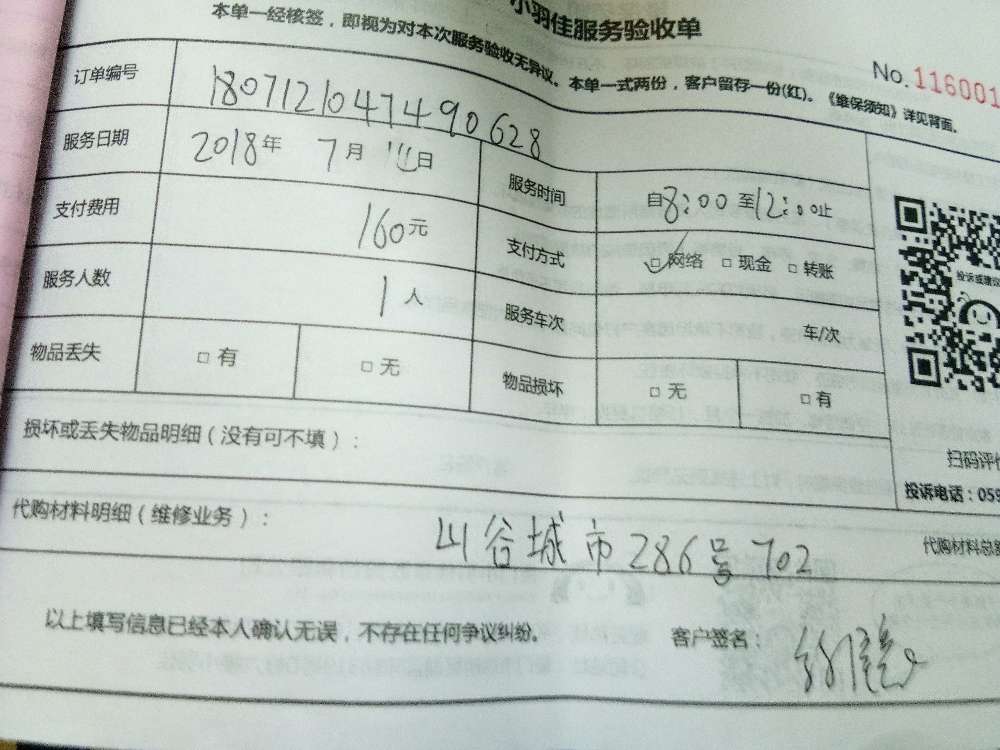 小羽佳服务验收单
本单一经核签，即视为对本次服务验收无异议。本单一式两份，客户留存一份(红)。《维保须知》详见背面。
No.116001
订单编号 180712104749０628
服务日期 2018年 7月 日 服务时间 自8:00至12:00止
支付费用 160元 支付方式 □网络 □现金 □转账
服务人数 1人 服务车次 车/次
物品丢失 □有 □无 物品损坏 □无 □有
投诉或建议
扫码评
投诉电话：059
损坏或丢失物品明细（没有可不填）：
代购材料明细（维修业务）： 山谷城市286号702 代购材料总
以上填写信息已经本人确认无误，不存在任何争议纠纷。 客户签名：